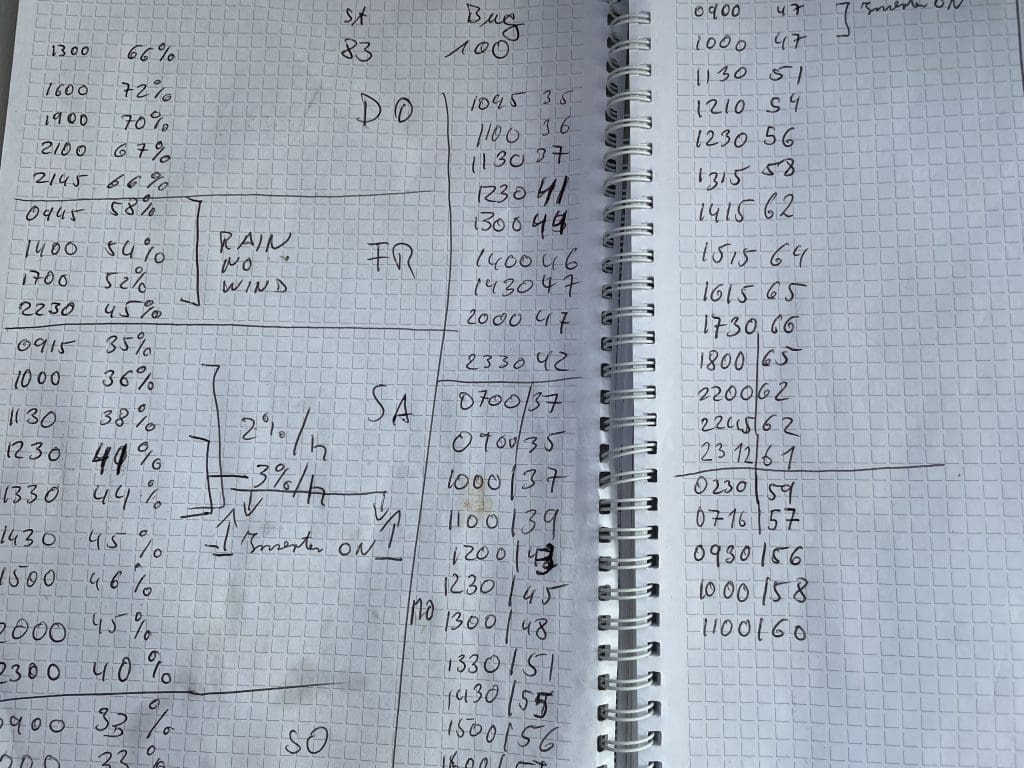 SA Bug
83 100
1300 66%
1600 72%
1900 70%
2100 67%
2145 66%
DO
0445 58%
1400 54%
1700 52%
2230 45%
RAIN
NO
WIND
FR
0915 35%
1000 36%
1130 38%
1230 41%
1330 44%
1430 45%
1500 46%
2000 45%
2300 40%
2%/h
3%/h
Inverter ON
SA
0900 33%
33%
SO
1045 35
1100 36
1130 37
1230 41
1300 44
1400 46
1430 47
2000 47
2330 42
0700/37
0900/35
1000/37
1100/39
1200/43
1230/45
MO
1300/48
1330/51
1430/55
1500/56
1600/
0900 47
1000 47
Inverter ON
1130 51
1210 54
1230 56
1315 58
1415 62
1515 64
1615 65
1730 66
1800 65
2200 62
2245 62
2312 61
0230 59
0716 57
0930/56
1000/58
1100/60